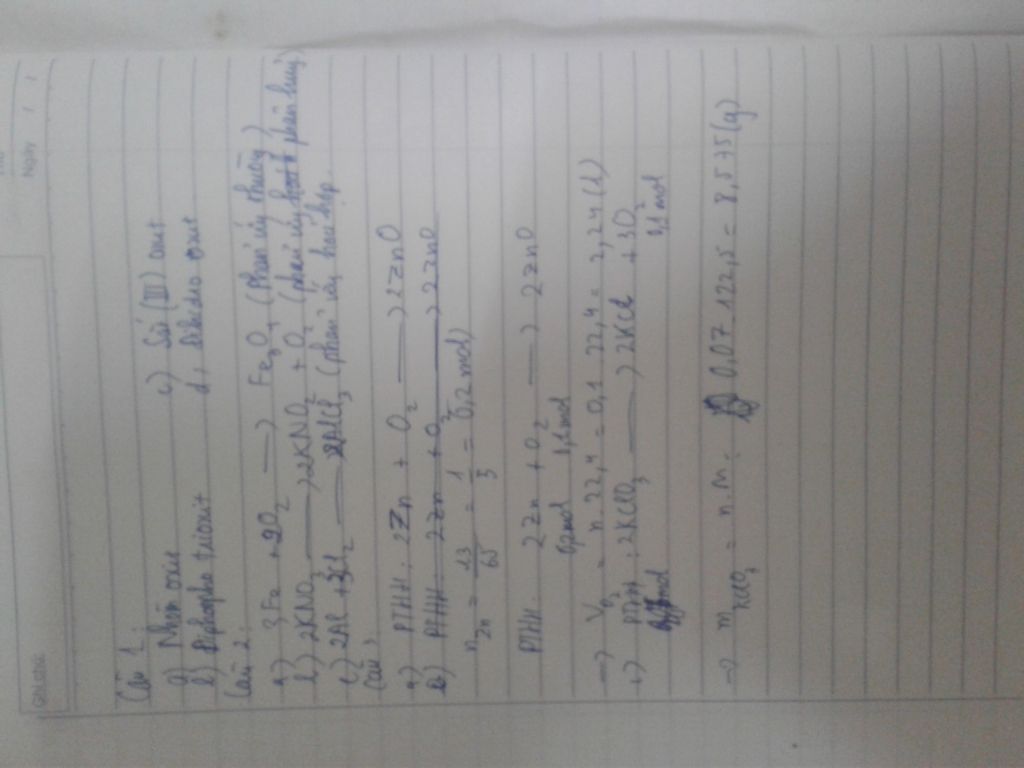 Thứ
Ngày / /
Ghi chú:
Câu 1:
a) Nhôm oxit c) Sắt (III) oxit
b) Điphotpho trioxit d,
Câu 2:
a) 3Fe + 2O2 → Fe3O4 (phản ứng
b) 2KNO3 → 2KNO2 + O2 (phản ứng phân hủy)
c) 2Al + 3Cl2 → 2AlCl3 (phản ứng hoá hợp.
Câu 3
a) PTHH: 2Zn + O2 → 2ZnO
b) PTHH: 2Zn + O2 → 2ZnO
nZn = 13/65 = 1/5 = 0,2 mol)
PTHH: 2Zn + O2 → 2ZnO
0,2mol 0,1mol
→ VO2 = n. 22,4 = 0,1 22,4 = 2,24 (l)
c) PTHH: 2KClO3 → 2KCl + 3O2
0,1 mol
→ mKClO3 = n.M = 0,07 . 122,5 = 8,575 (g)